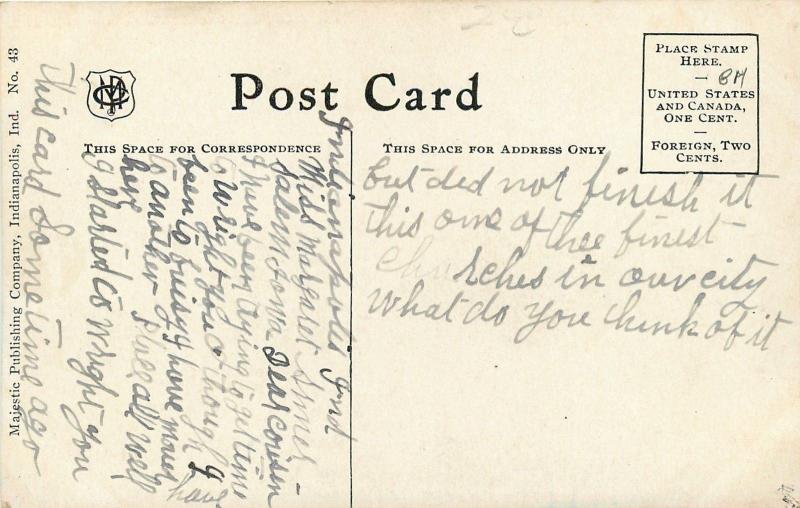 Post Card
THIS SPACE FOR CORRESPONDENCE
THIS SPACE FOR ADDRESS ONLY
PLACE STAMP
HERE.
—
UNITED STATES
AND CANADA,
ONE CENT.
—
FOREIGN, TWO
CENTS.
Majestic Publishing Company, Indianapolis, Ind. No. 43
Indianapolis Ind
Miss Margaret
Salem Iowa Dear cousin
I have been trying to get time
to wright you though I have
been to buisy have moved
to another all well
her
I started to wright you
This card Sometime ago
but did not finish it
this one of thee finest
churches in our city
What do you think of it